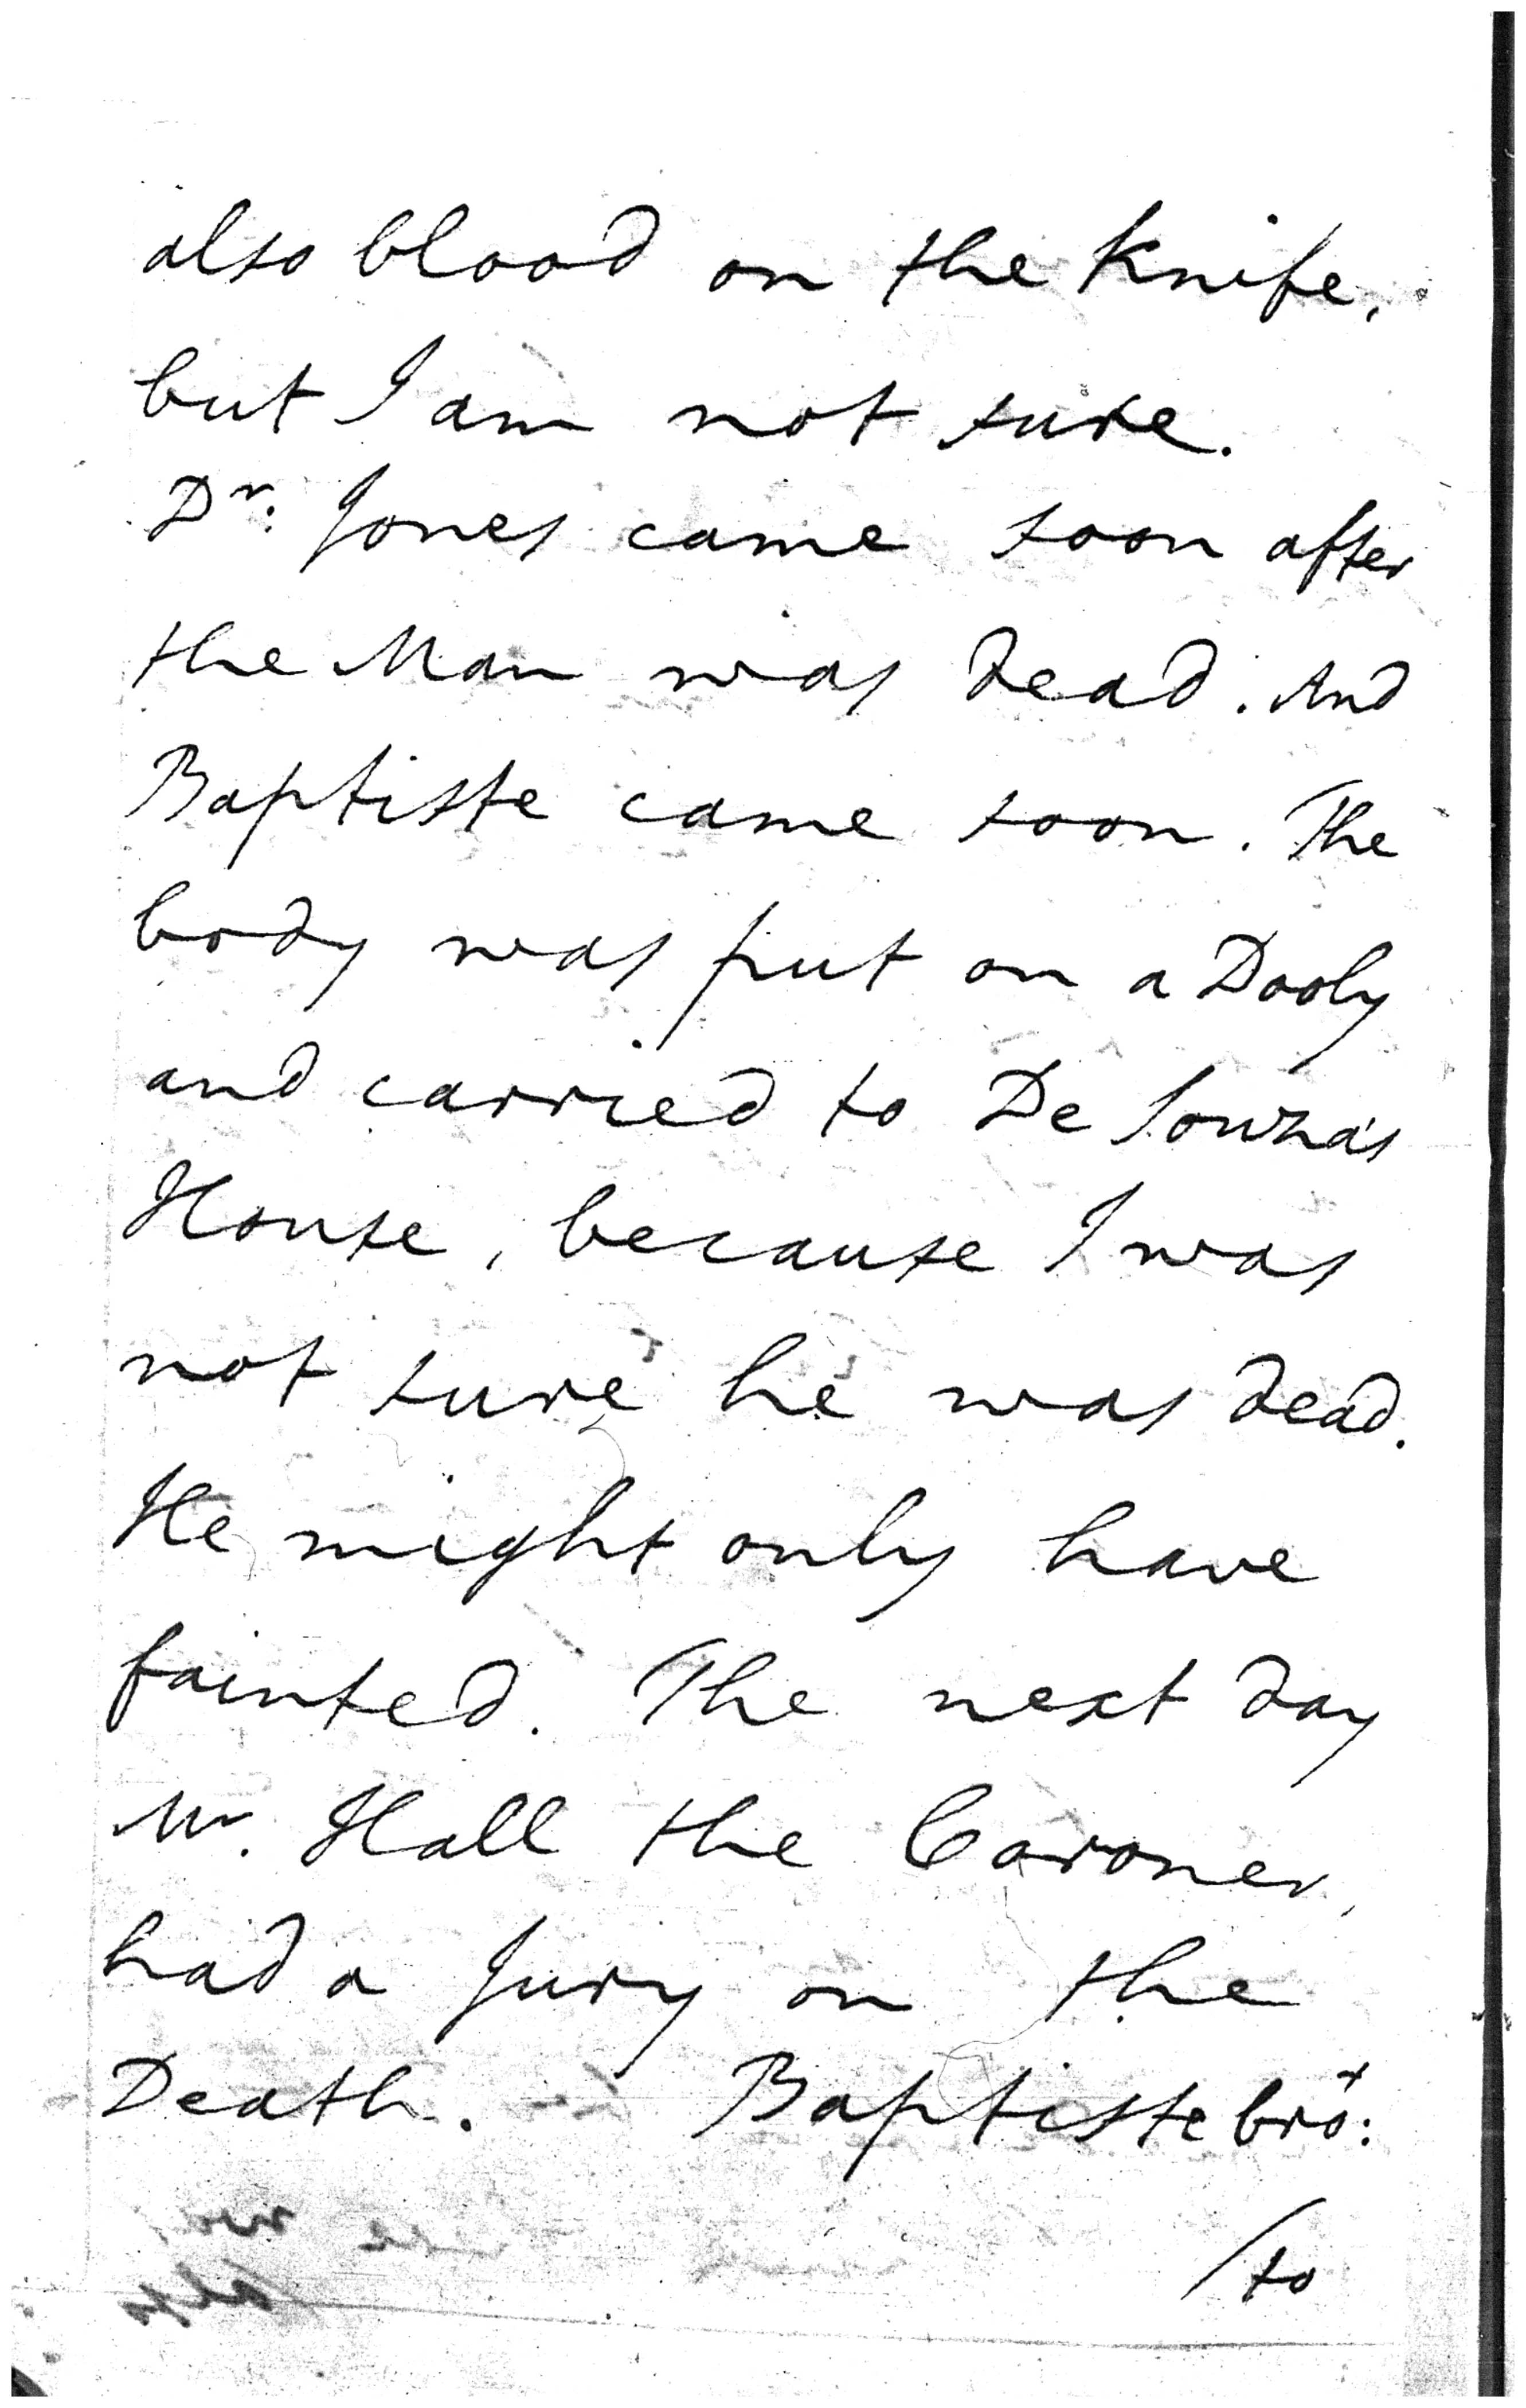 also blood on the Knife,
but I am not sure.
Dr. Jones came soon after
the Man was dead. And
Baptiste came soon. The
body was put on a Dooly
and carried to De Souza's
House, because I was
not sure he was dead.
He might only have
fainted. The next day
Mr. Hall the Coroner,
had a Jury on the
Death. Baptiste brot:
/to